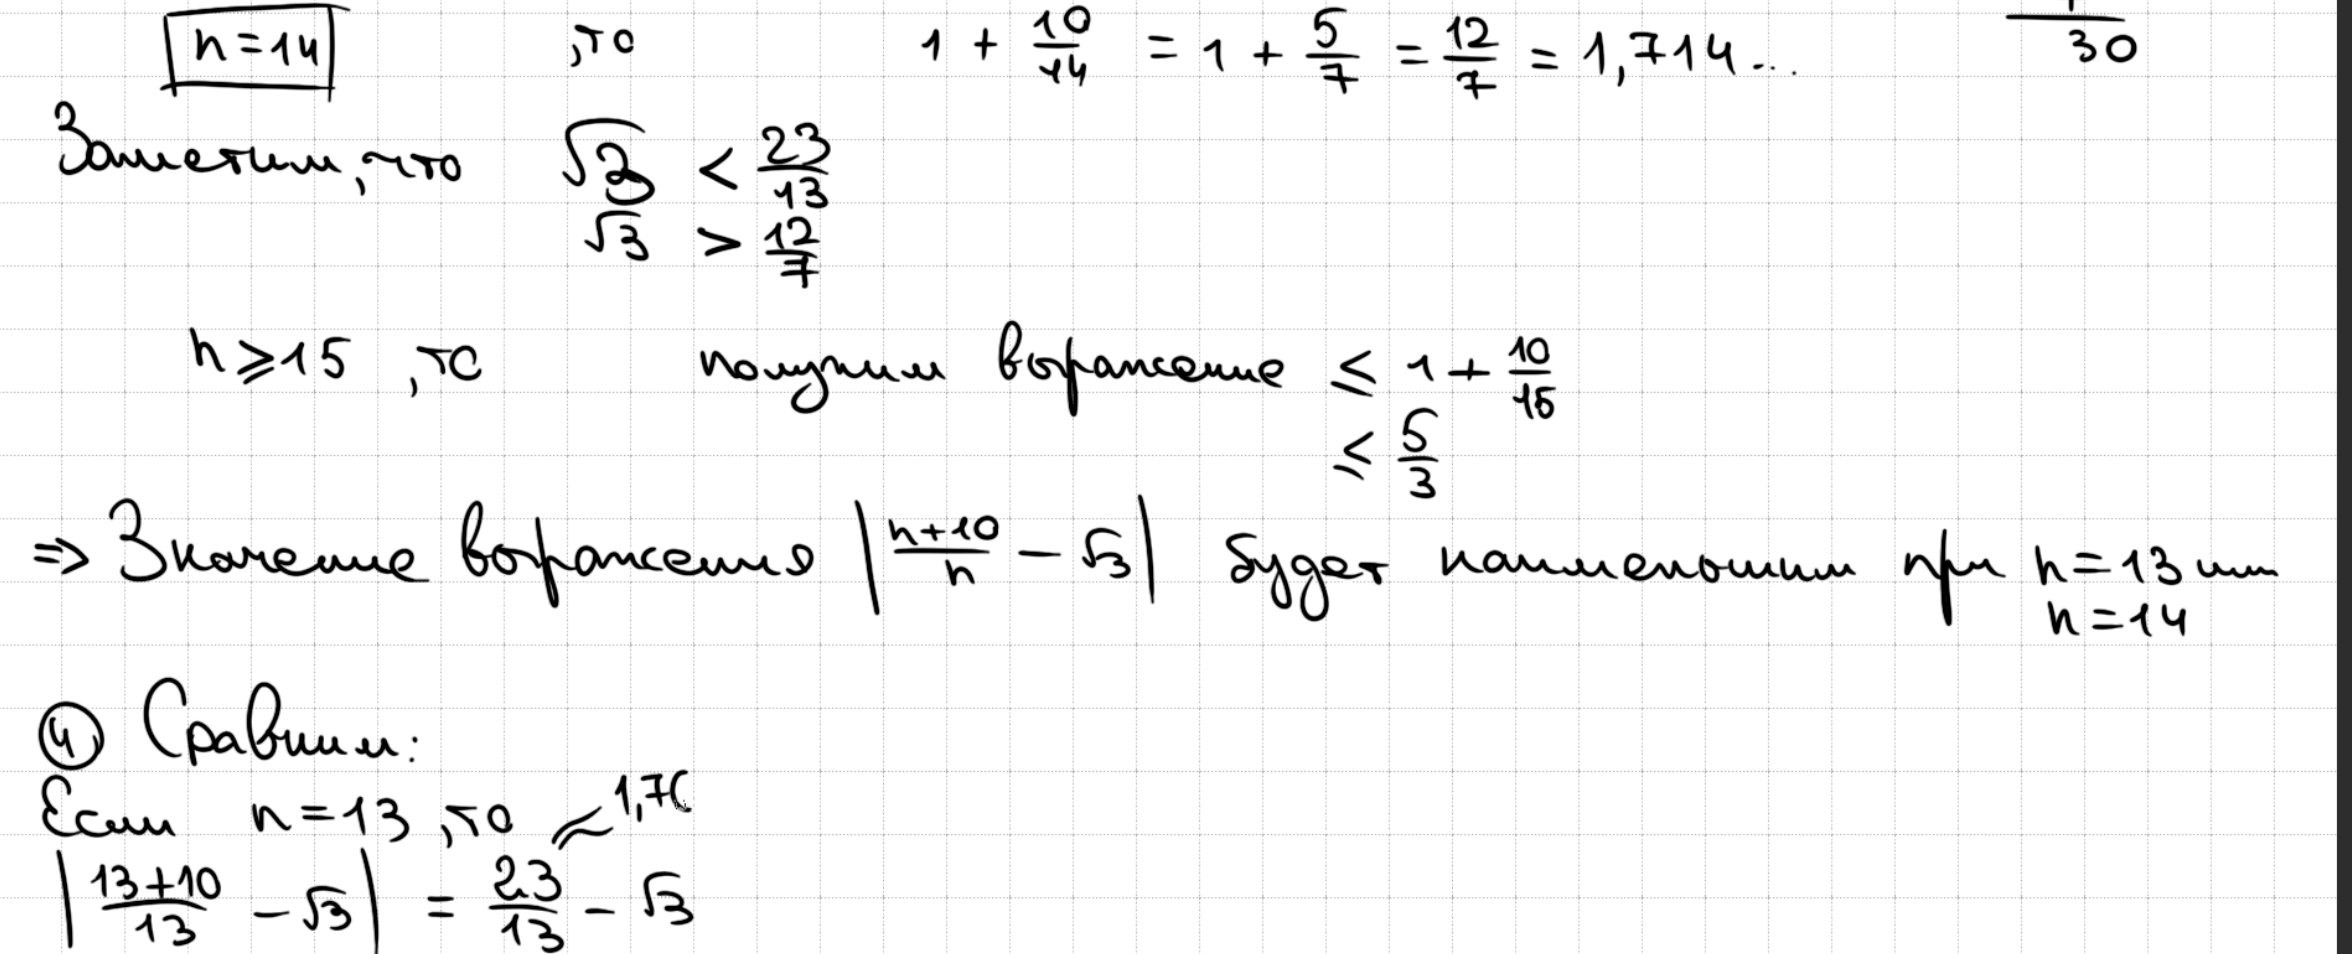 n=14 ,то 1 + 10/14 = 1 + 5/7 = 12/7 = 1,714...
30
Заметим, что √3 < 23/13
√3 > 12/7
n ≥ 15 ,то получим выражение ≤ 1 + 10/15
≤ 5/3
⇒ Значение выражения |n+10/n − √3| будет наименьшим при n=13 или
n=14
④ Сравним:
Если n=13 ,то ≈1,7
|13+10/13 − √3| = 23/13 − √3